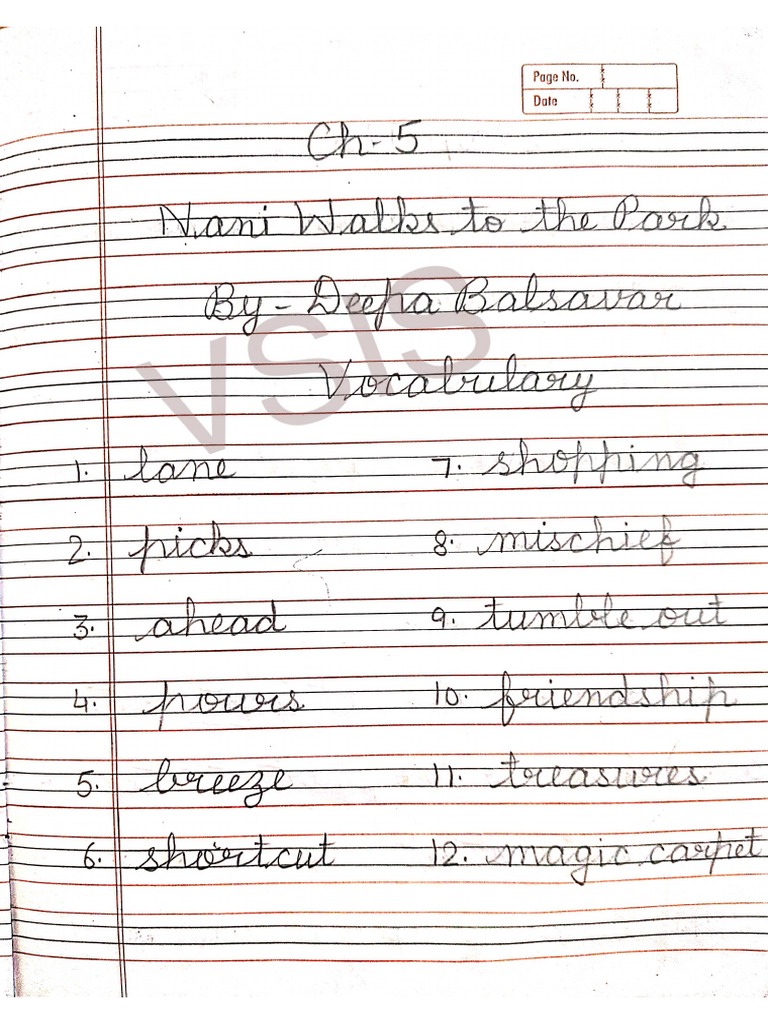 Page No.
Date
Ch-5
Nani Walks to the Park
By - Deepa Balsavar
VSIS
Vocabulary
1. lane 7. shopping
2. picks 8. mischief
3. ahead 9. tumble out
4. pours 10. friendship
5. breeze 11. treasures
6. shortcut 12. magic carpet